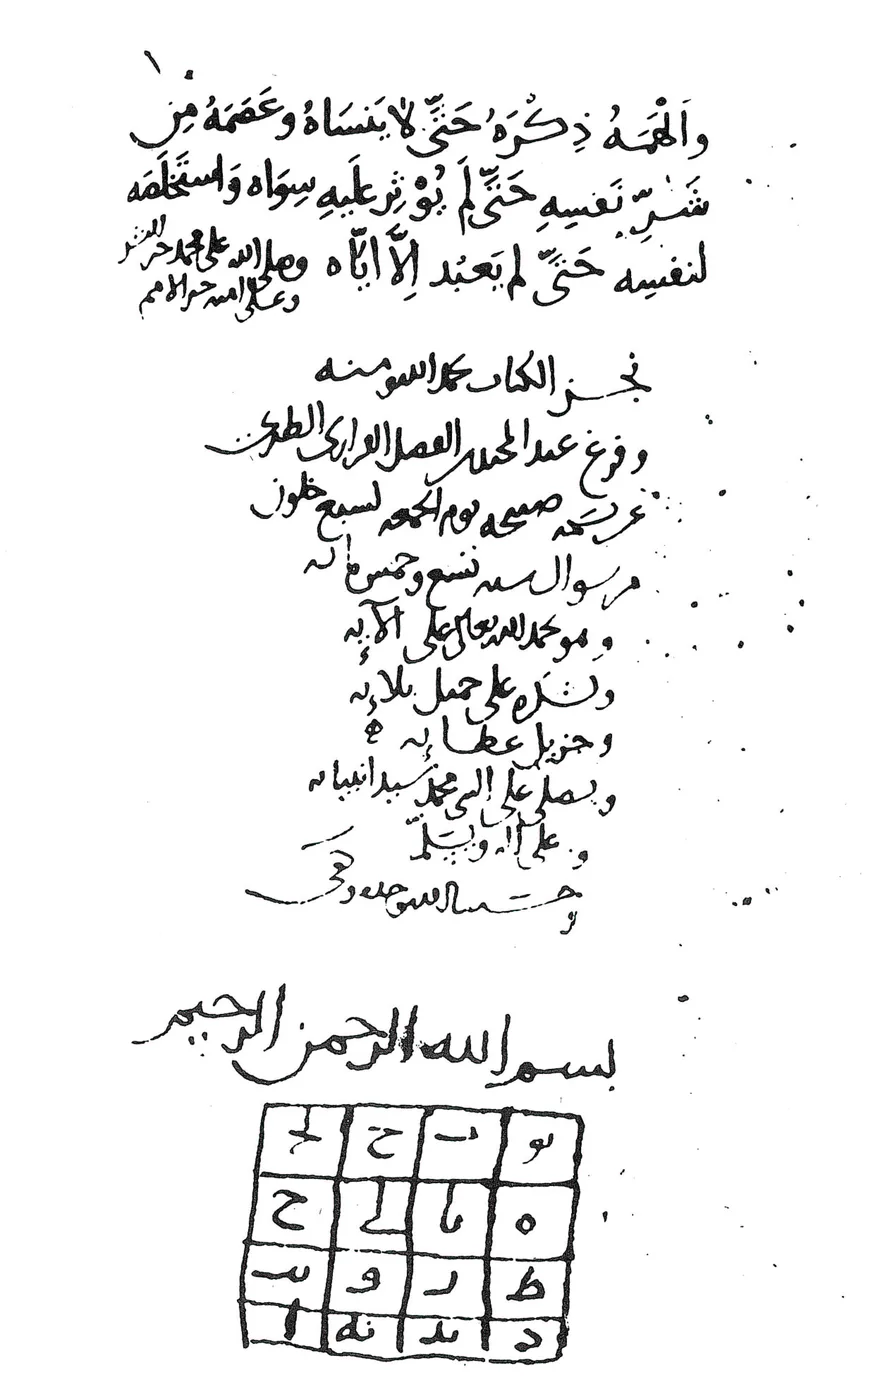 وَأَلْهَمَهُ ذِكْرَهُ حَتَّى لَا يَنسَاهُ وعَصَمَهُ مِن
شَرِّ نَفسِهِ حَتَّى لَم يُؤْثِر عَلَيهِ سِوَاه وَاستَخلَصَه
لنفسِه حَتَّى لم يَعبُد إِلَّا ايَّاه وصلى الله على محمد خير البشر
وعلى امته خير الامم
نجز الكتاب بحمد الله ومنه
وفرغ عبد المجيد بن الفضل الفراري الطبري
عن نسخه صبيحه يوم الجمعه لسبع خلون
من شوال سنه تسع وخمس مائه
وهو يحمد الله تعالى على آلائه
ويشكره على جميل بلائه
وجزيل عطائه
ويصلي على النبي محمد سيد انبيائه
وعلى آله ويسلم
وحسبنا الله وحده وكفى
بسم الله الرحمن الرحيم
ح
ه ح
ط و
د ا